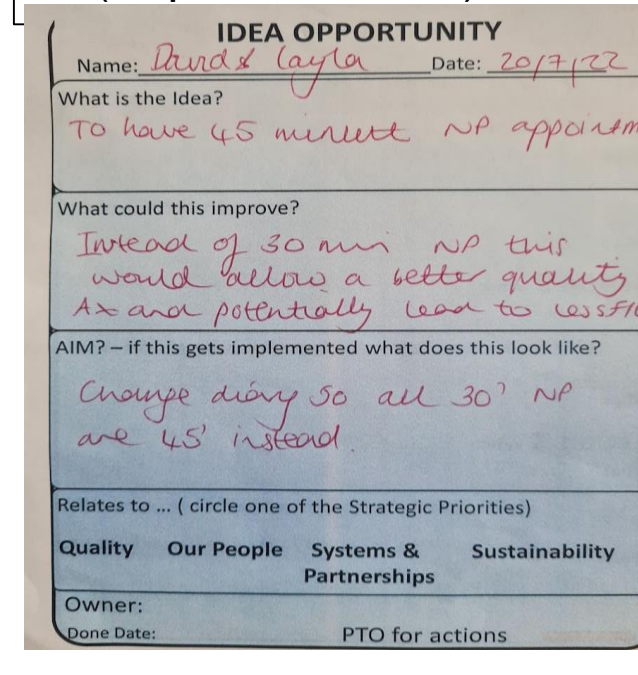 IDEA OPPORTUNITY
Name: David & Layla Date: 20/7/22
What is the Idea?
To have 45 minute NP
What could this improve?
Instead of 30 min NP this
would allow a better quality
Ax and potentially lead to less
AIM? – if this gets implemented what does this look like?
Change diary so all 30' NP
are 45' instead.
Relates to ... ( circle one of the Strategic Priorities)
Quality Our People Systems & Sustainability
Partnerships
Owner:
Done Date: PTO for actions